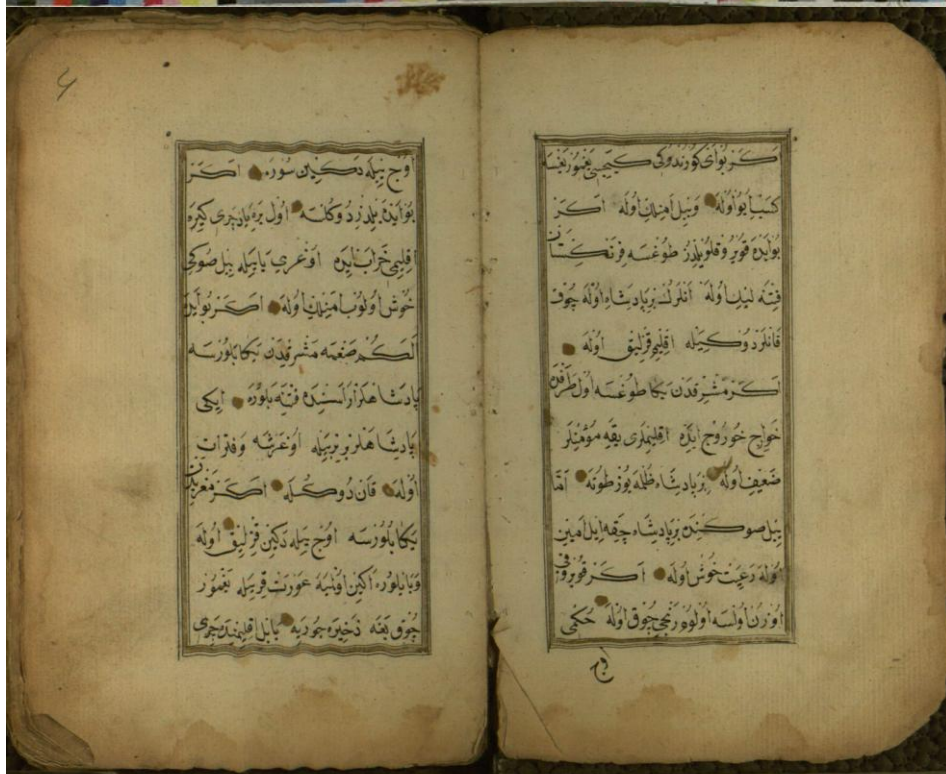 كر بو آى كورندوكى كيجه يغمور يغسه
كتبا بو اوله وييل امنلك اوله اكر
بو آيده قويروقلو يلدز طوغسه فرنكستان
فتنه ليك اوله انلرك بر پادشاه اوله چوق
قانلر دوكيله اقليم قزليق اوله
اكر مشرقدن يكا طوغسه اول طرفده
خوارج خروج ايده اقليملرى يقه مؤمنلر
ضعيف اوله بر پادشاه ظلمه يوز طوته اما
ييل صوكنده بر پادشاه چقه ايل امين
اوله رعيت خوش اوله اكر قويروقى
اوزون اولسه اولوم رنجى چوق اوله حكمى
اوج
4
اوج ييله دكين سوره اكر
بو آيده يلدز دوكلنه اول يره ياد چرى كيره
اقليمى خراب ايده اوغرى يا ييله ييل صوكى
خوش اولوب امنلك اوله اكر بو آيده
الكم صغمه مشرقدن يكا بلورسه
پادشاهلر اراسنده فتنه بلوره ايكى
پادشاهلر بربريله اوغرشه وفترات
اوله قان دوكله اكر مغربدن
يكا بلورسه اوج ييله دكين قزليق اوله
وبا بلوره اكين اولميه عورت قريله يغمور
چوق يغه ذخيره چوريه بابل اقليمنده چرى